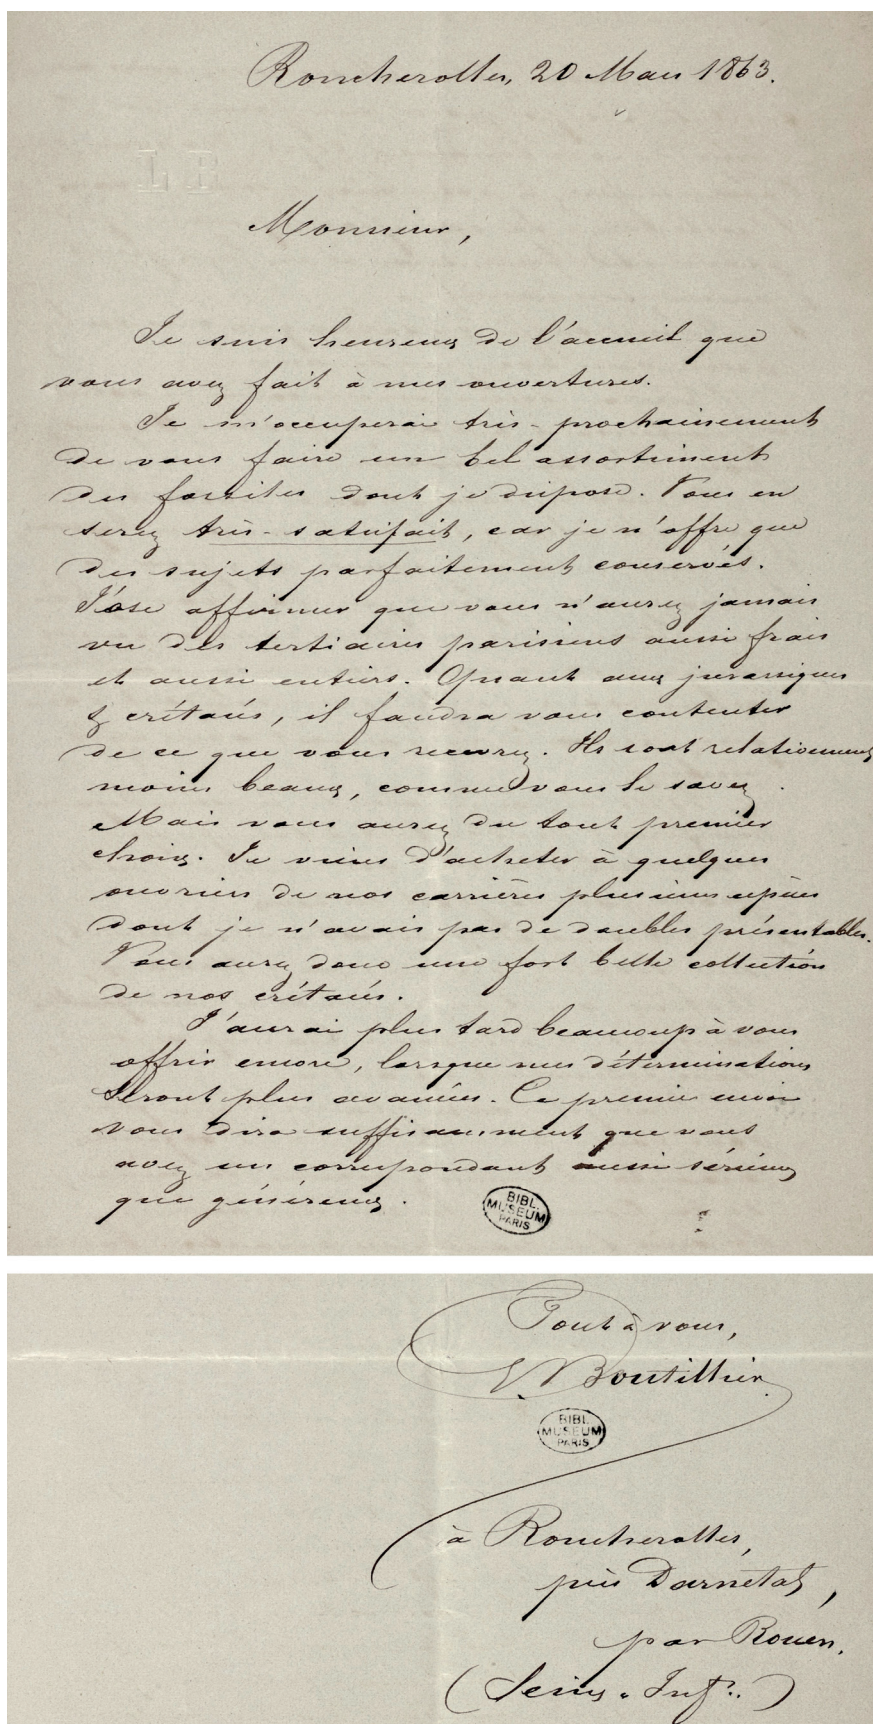 Roncherolles, 20 Mars 1863.
L B
Monsieur,
Je suis heureux de l'accueil que
vous avez fait à mes ouvertures.
Je m'occuperai très-prochainement
de vous faire un bel assortiment
des fossiles dont je dispose. Vous en
serez très-satisfait, car je n'offre que
des sujets parfaitement conservés.
J'ose affirmer que vous n'aurez jamais
vu des tertiaires parisiens aussi frais
et aussi entiers. Quant aux jurassiques
& crétacés, il faudra vous contenter
de ce que vous recevrez. Ils sont relativement
moins beaux, comme vous le savez.
Mais vous aurez du tout premier
choix. Je viens d'acheter à quelques
ouvriers de nos carrières plusieurs espèces
dont je n'avais pas de doubles présentables.
Vous aurez donc une fort belle collection
de nos crétacés.
J'aurai plus tard beaucoup à vous
offrir encore, lorsque mes déterminations
seront plus avancées. Ce premier envoi
vous dira suffisamment que vous
avez un correspondant aussi sérieux
que généreux.
BIBL.
MUSEUM
PARIS
Tout à vous,
Boutillier
BIBL.
MUSEUM
PARIS
à Roncherolles,
près Darnetal,
par Rouen.
(Seine-Infre.)